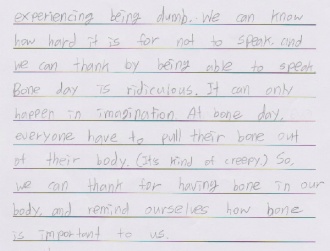 experiencing being dump. We can know
how hard it is for not to speak. and
we can thank by being able to speak
Bone day is ridiculous. It can only
happer in imagination. At bone day,
everyone have to pull their bone out
of their body. (Its kind of creepy.) So,
we can thank for having bone in our
body, and remind ourselves how bone
is important to us.